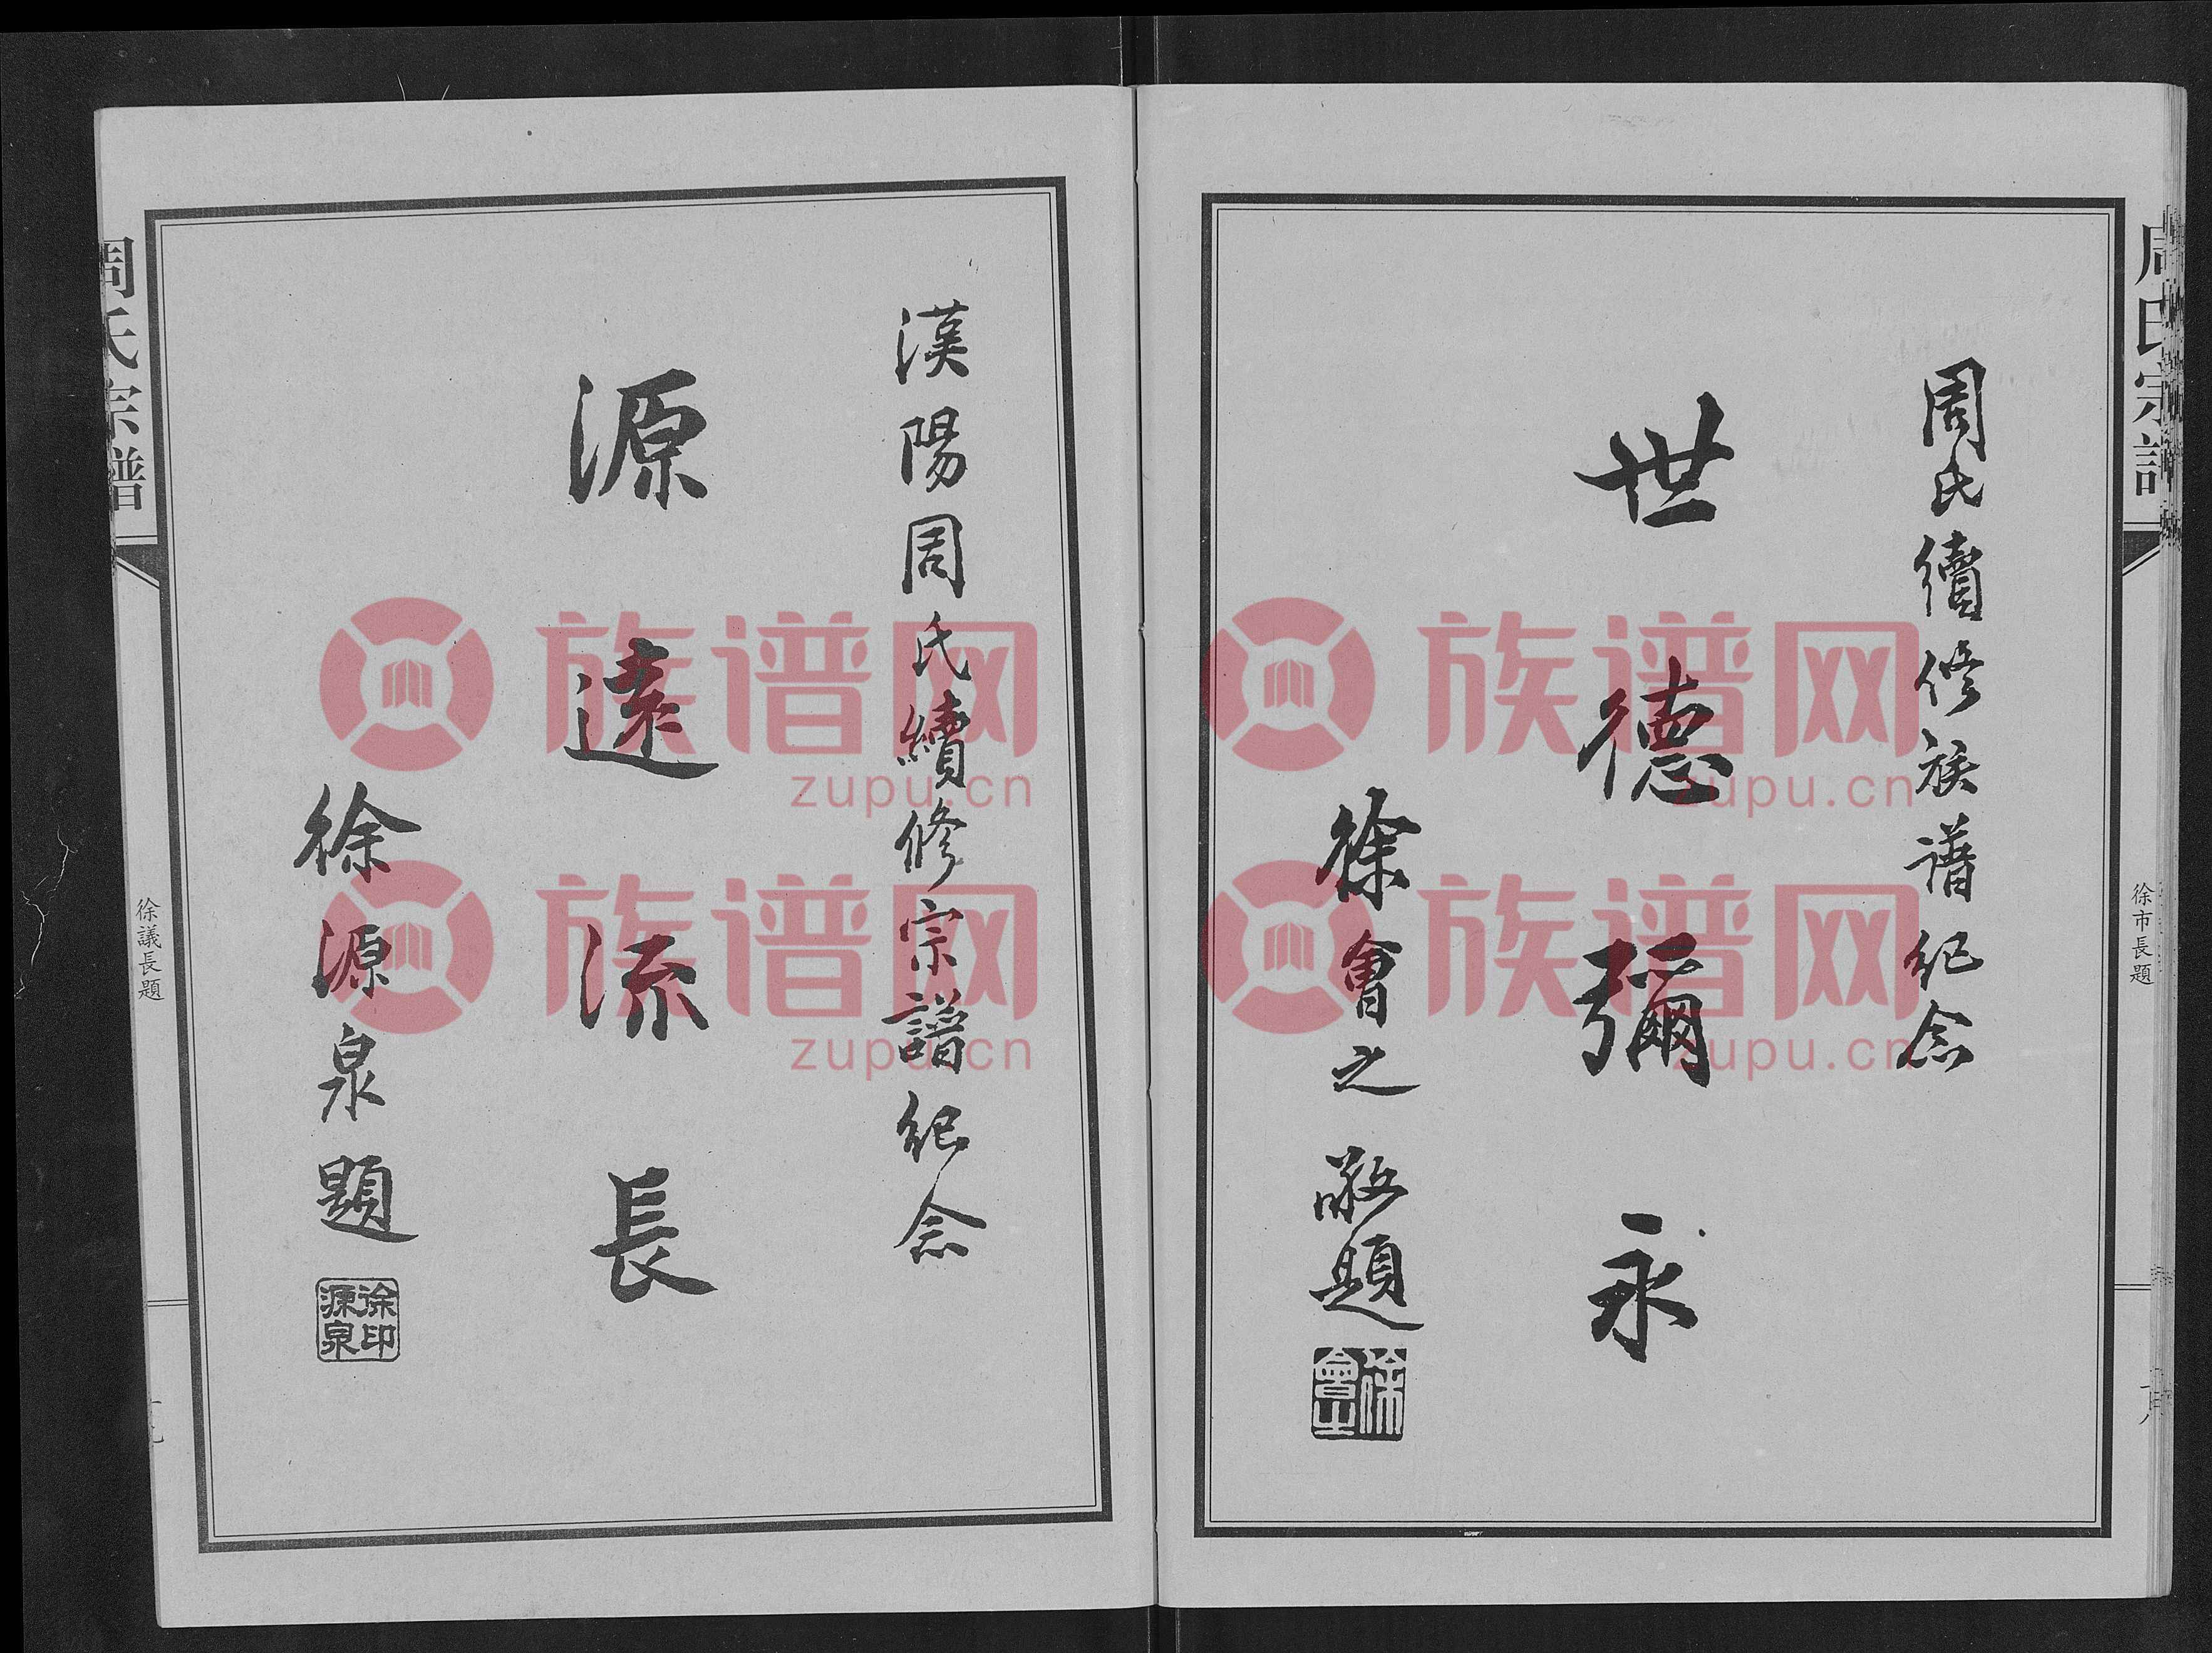 周氏宗譜
徐市長題
周氏續修族譜紀念
世德彌永
徐會之敬題
徐會之
漢陽周氏續修宗譜紀念
源遠流長
徐源泉題
徐印源泉
周氏宗譜
徐議長題
族谱网
zupu.cn
族谱网
zupu.cn
族谱网
zupu.cn
族谱网
zupu.cn